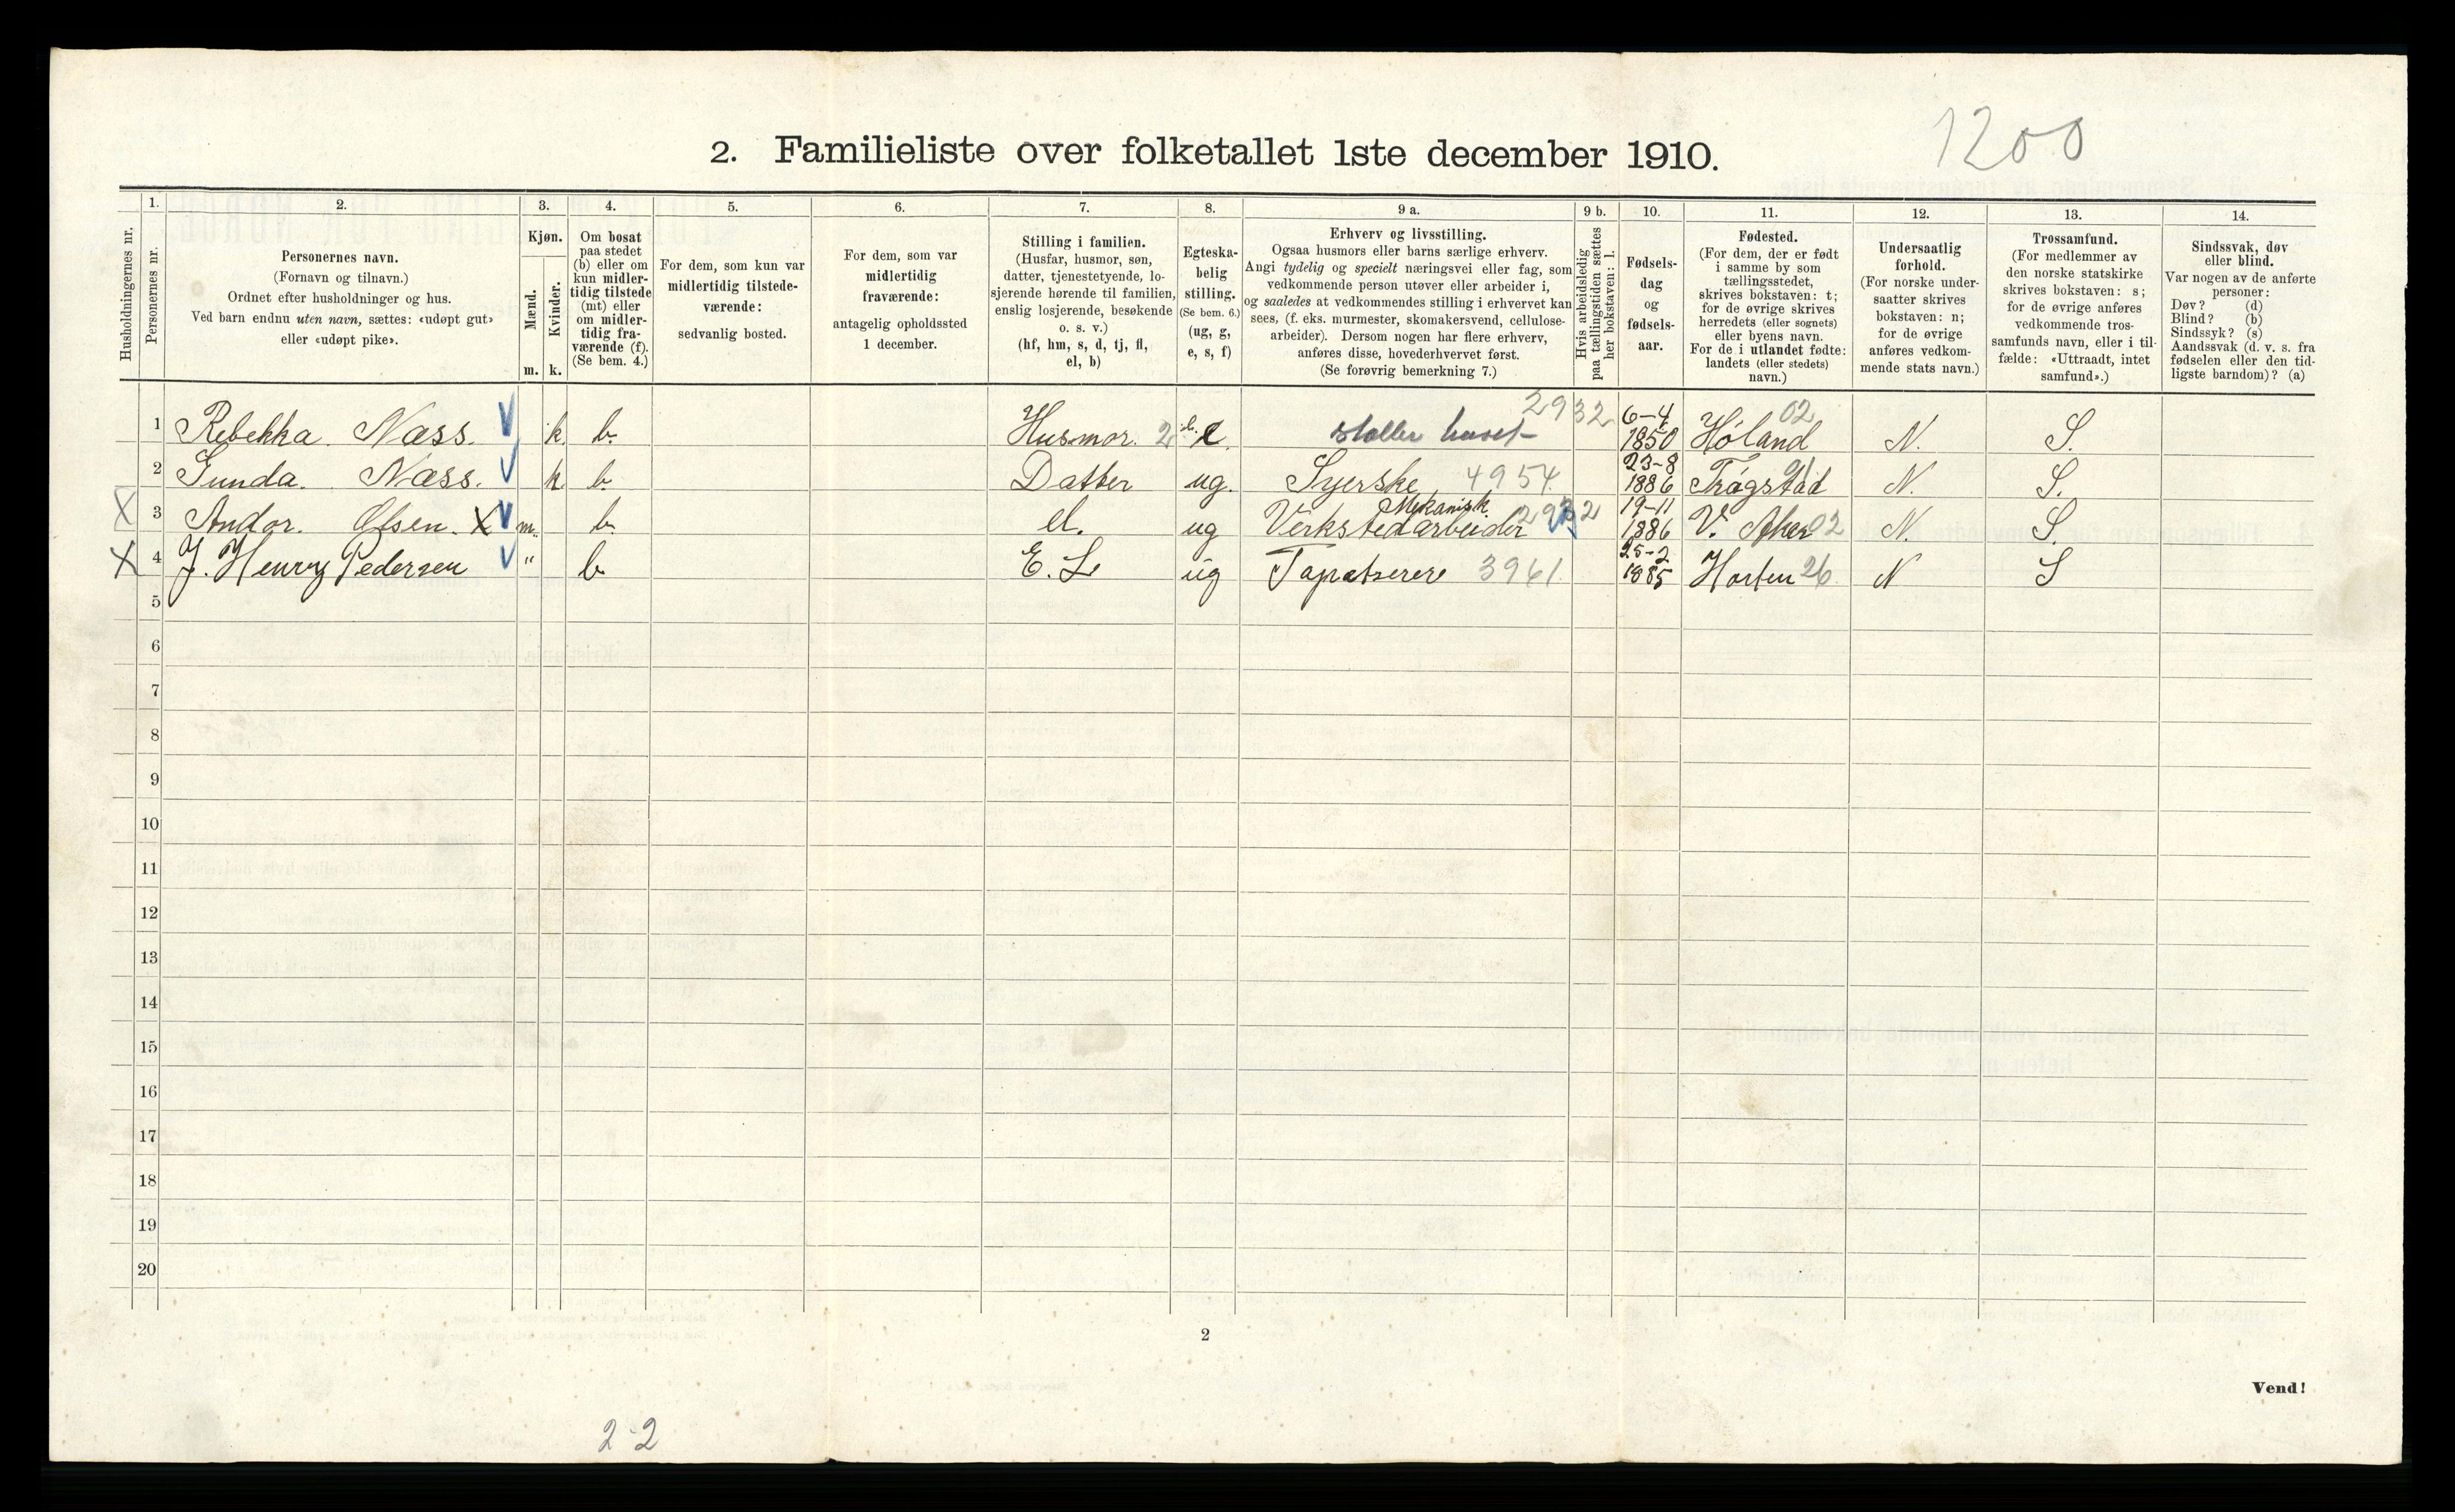 1200
2. Familieliste over folketallet 1ste december 1910.
Husholdningernes nr.
1.
Personernes nr.
2.
Personernes navn.
(Fornavn og tilnavn.)
Ordnet efter husholdninger og hus.
Ved barn endnu uten navn, sættes: «udøpt gut»
eller «udøpt pike».
3.
Kjøn.
Mænd.
Kvinder.
m. k.
4.
Om bosat
paa stedet
(b) eller om
kun midler-
tidig tilstede
(mt) eller
om midler-
tidig fra-
værende (f).
(Se bem. 4.)
5.
For dem, som kun var
midlertidig tilstede-
værende:
sedvanlig bosted.
6.
For dem, som var
midlertidig
fraværende:
antagelig opholdssted
1 december.
7.
Stilling i familien.
(Husfar, husmor, søn,
datter, tjenestetyende, lo-
sjerende hørende til familien,
enslig losjerende, besøkende
o. s. v.)
(hf, hm, s, d, tj, fl,
el, b)
8.
Egteska-
belig
stilling.
(Se bem. 6.)
(ug, g,
e, s, f)
9 a.
Erhverv og livsstilling.
Ogsaa husmors eller barns særlige erhverv.
Angi tydelig og specielt næringsvei eller fag, som
vedkommende person utøver eller arbeider i,
og saaledes at vedkommendes stilling i erhvervet kan
sees, (f. eks. murmester, skomakersvend, cellulose-
arbeider). Dersom nogen har flere erhverv,
anføres disse, hovederhvervet først.
(Se forøvrig bemerkning 7.)
9 b.
Hvis arbeidsledig
paa tællingstiden sættes
her bokstaven: l.
10.
Fødsels-
dag
og
fødsels-
aar.
11.
Fødested.
(For dem, der er født
i samme by som
tællingsstedet,
skrives bokstaven: t;
for de øvrige skrives
herredets (eller sognets)
eller byens navn.
For de i utlandet fødte:
landets (eller stedets)
navn.)
12.
Undersaatlig
forhold.
(For norske under-
saatter skrives
bokstaven: n;
for de øvrige
anføres vedkom-
mende stats navn.)
13.
Trossamfund.
(For medlemmer av
den norske statskirke
skrives bokstaven: s;
for de øvrige anføres
vedkommende tros-
samfunds navn, eller i til-
fælde: «Uttraadt, intet
samfund».)
14.
Sindssvak, døv
eller blind.
Var nogen av de anførte
personer:
Døv? (d)
Blind? (b)
Sindssyk? (s)
Aandssvak (d. v. s. fra
fødselen eller den tid-
ligste barndom)? (a)
1 Rebekka. Næss. k. b. Husmor. 2 e. steller huset 2932 6-4 1850 Høland 02 N. S.
2 Gunda. Næss. k b. Datter ug. Syerske 4954 23-8 1886 Trøgstad 01 N. S.
X 3 Andor. Olsen. X m. b. el. ug Mekanisk. Verkstedarbeider 2932 19-11 1886 V. Aker 02 N. S.
X 4 J. Henry Pedersen " b E. L ug Tapetserere 3961 25-2 1885 Horten 26 N S
5
6
7
8
9
10
11
12
13
14
15
16
17
18
19
20
2
Vend!
2-2